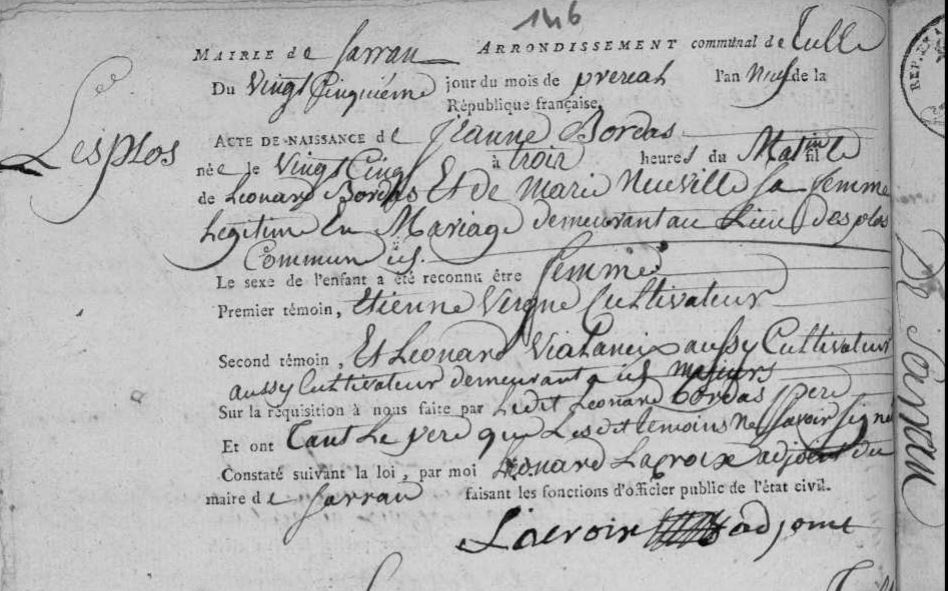 146
MAIRIE de Sarran ARRONDISSEMENT communal de Tulle
Du Vingt Cinquiéme jour du mois de prereal l'an neuf de la
République française.
Lesplos
ACTE DE NAISSANCE de jeanne Bordas
née le Vingt Cinq à troix heures du Matin fille
de Leonard Bordas Et de Marie Neuville sa femme
Legitime En Mariage demeurant au Lieu des plos
Commun
Le sexe de l'enfant a été reconnu être femme
Premier témoin, Etienne Vergne Cultivateur
Second témoin, Et Leonard Vialaneix aussy Cultivateur
aussy Cultivateur demeurant a majeurs
Sur la réquisition à nous faite par Ledit Leonard Bordas pere
Et ont tant Le pere que Les dit temoins ne savoir signe
Constaté suivant la loi, par moi Leonard Lacroix adjoint du
maire de Sarran faisant les fonctions d'officier public de l'état civil.
Lacroix adjoint
De Sarran
REP.